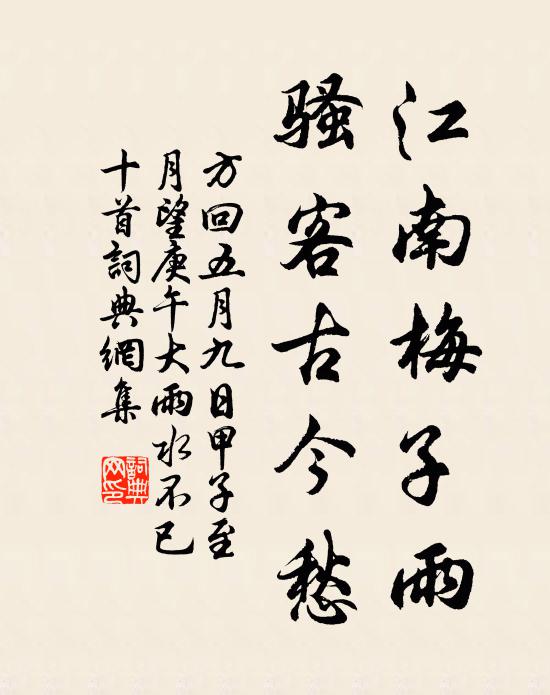 江南梅子雨
騷客古今愁
方回五月九日甲子至
月望庚午大雨水不已
十首詞典網集
詞典
网印